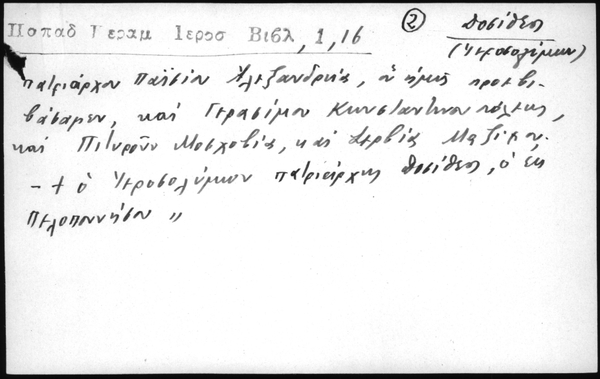 Παπαδ Κεραμ Ιεροσ Βιβλ, 1, 16
② Δοσίθεος
(Ἱεροσολύμων)
πατριάρχου Παϊσίου Ἀλεξανδρείας, ὃν ἡμεῖς προεβι-
βάσαμεν, καὶ Γερασίμου Κωνσταντινουπόλεως,
καὶ Πιτυροῦν Μοσχοβίας, καὶ Σερβίας Μαξίμου.
- † ὁ Ἱεροσολύμων πατριάρχης Δοσίθεος, ὁ ἐκ
Πελοποννήσου „